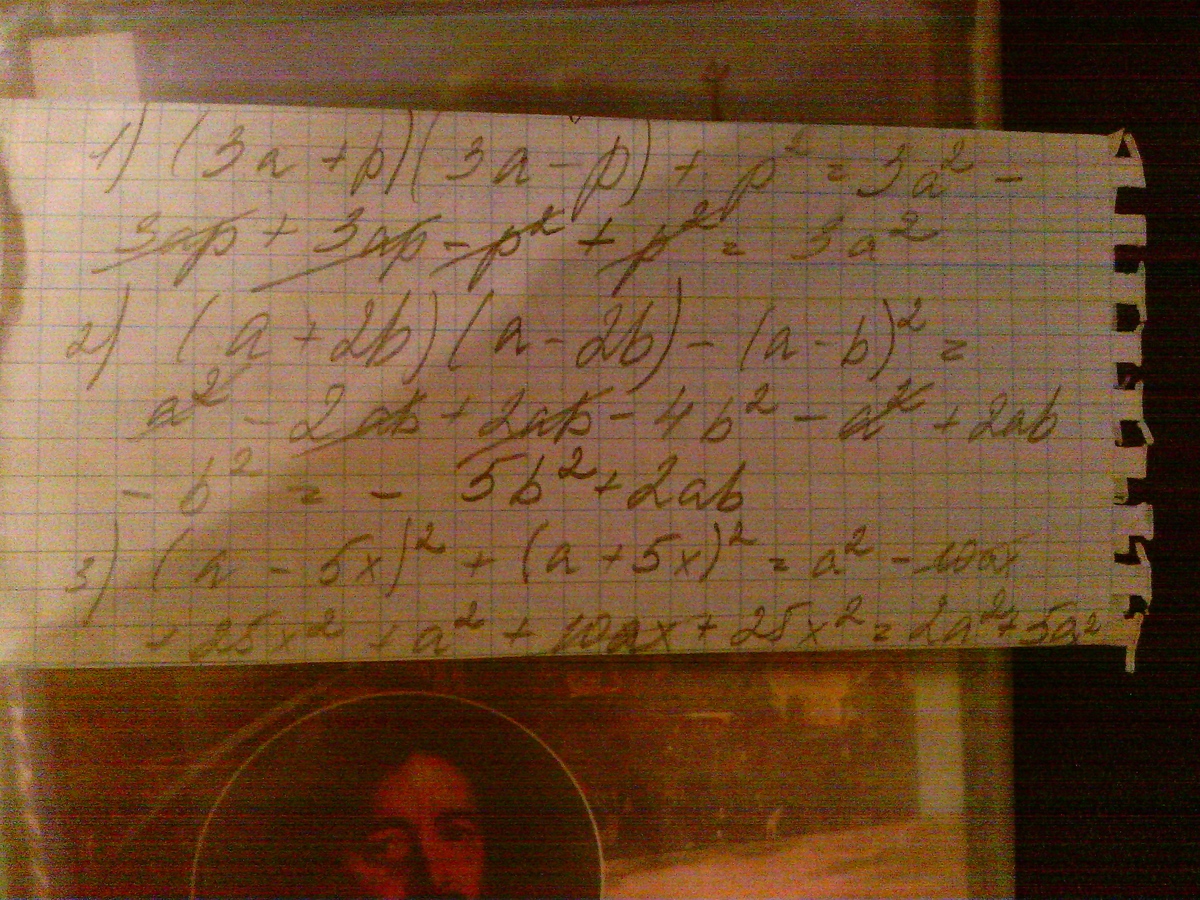 1) (3a + p)(3a - p) + p² = 3a² -
3ap + 3ap - p² + p² = 3a²
2) (a + 2b)(a - 2b) - (a - b)² =
a² - 2ab + 2ab - 4b² - a² + 2ab
- b² = - 5b² + 2ab
3) (a - 5x)² + (a + 5x)² = a² - 10ax
+ 25x² + a² + 10ax + 25x² = 2a² +